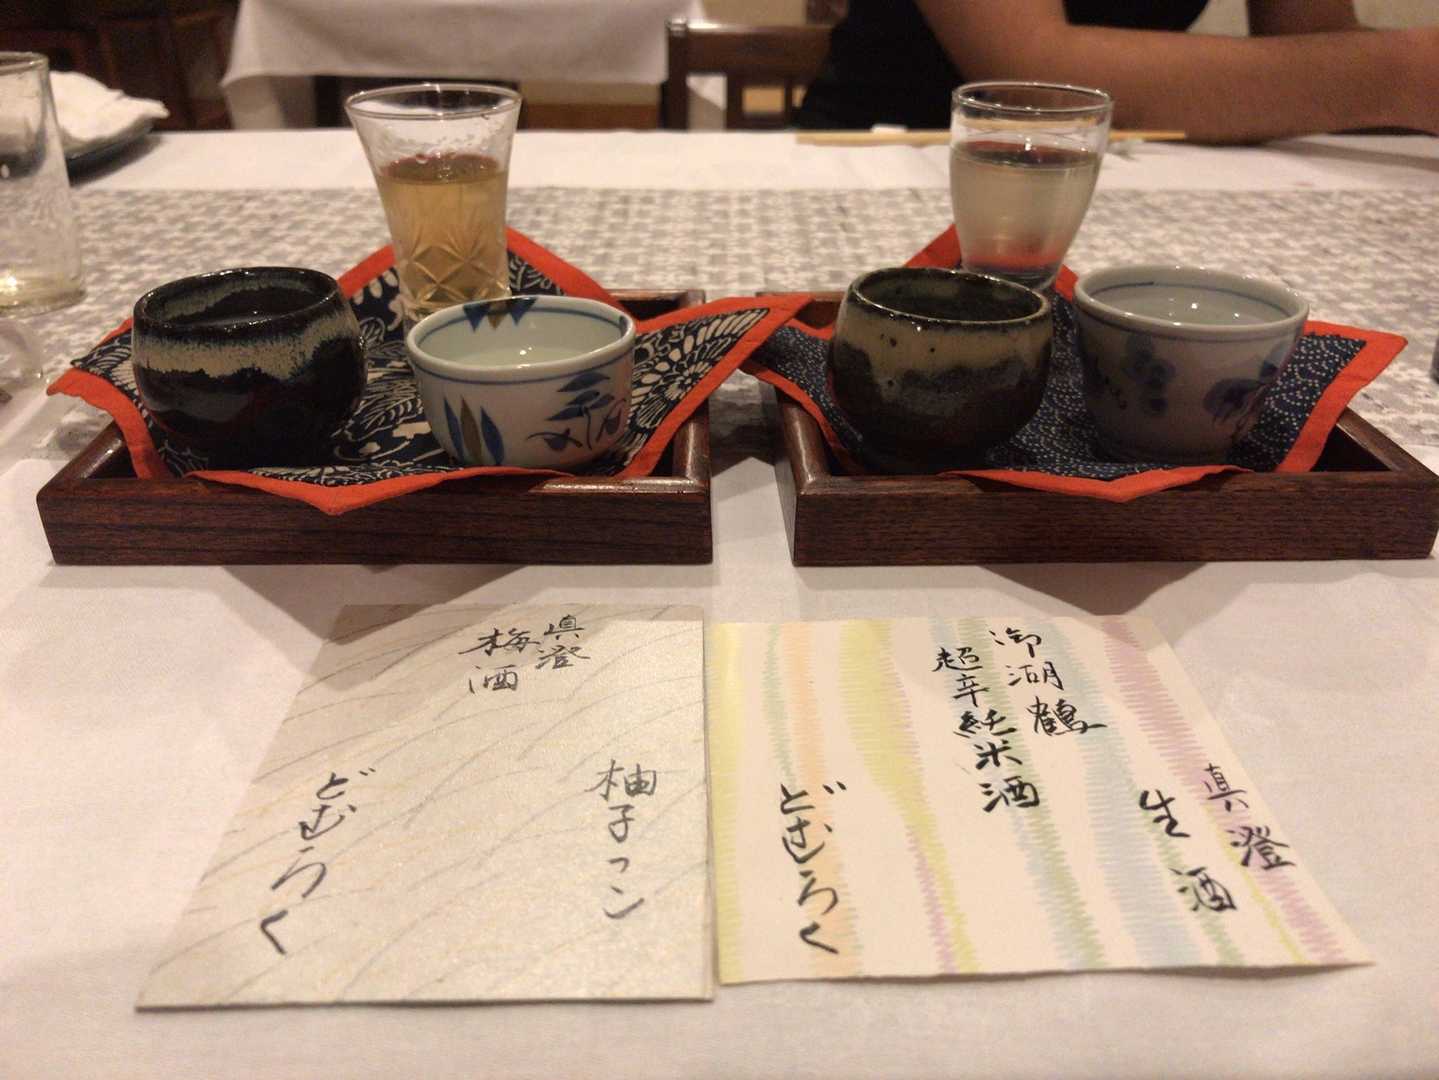 眞澄
梅酒
柚子っこ
どむろく
御湖鶴
超辛純米酒
真澄
生酒
どむろく